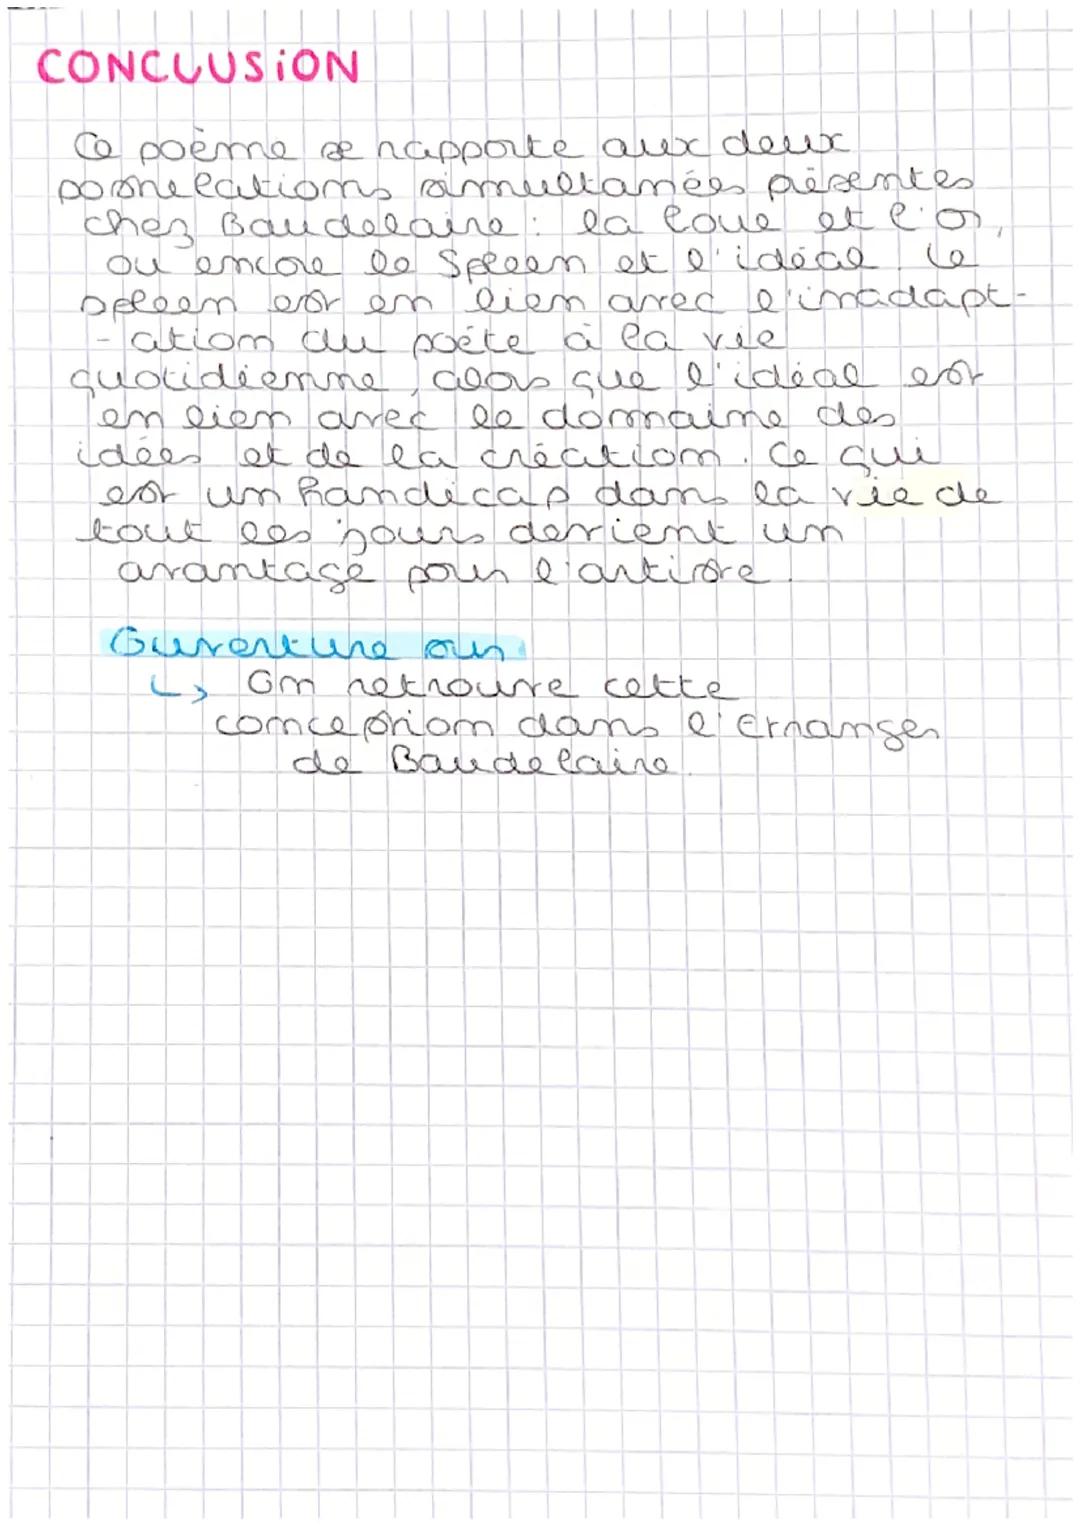 CONCLUSION
Ce poème se rapporte aux deux
postulations simultanées présentes
chez Baudelaire : la boue et l'or,
ou encore le Spleen et l'idéal. Le
spleen est en lien avec l'inadapt-
-ation du poète à la vie
quotidienne, alors que l'idéal est
en lien avec le domaine des
idées et de la création. Ce qui
est un handicap dans la vie de
tout les jours devient un
avantage pour l'artiste.
Ouverture sur
↳ On retrouve cette
conception dans l'Etranger
de Baudelaire.